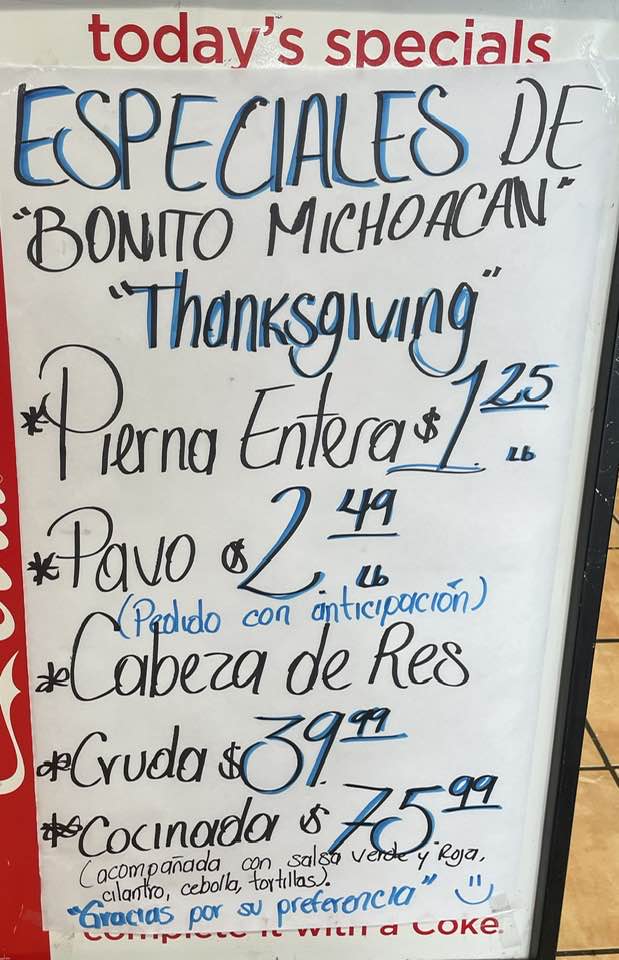 today's specials
ESPECIALES DE
"BONITO MICHOACAN"
"Thanksgiving"
*Pierna Entera $1.25 Lb
*Pavo $2.49 Lb
(Pedido con anticipación)
*Cabeza de Res
*Cruda $39.99
*Cocinada $75.99
(acompañada con salsa verde y Roja,
cilantro, cebolla, tortillas).
"Gracias por su preferencia"
complete it with a Coke